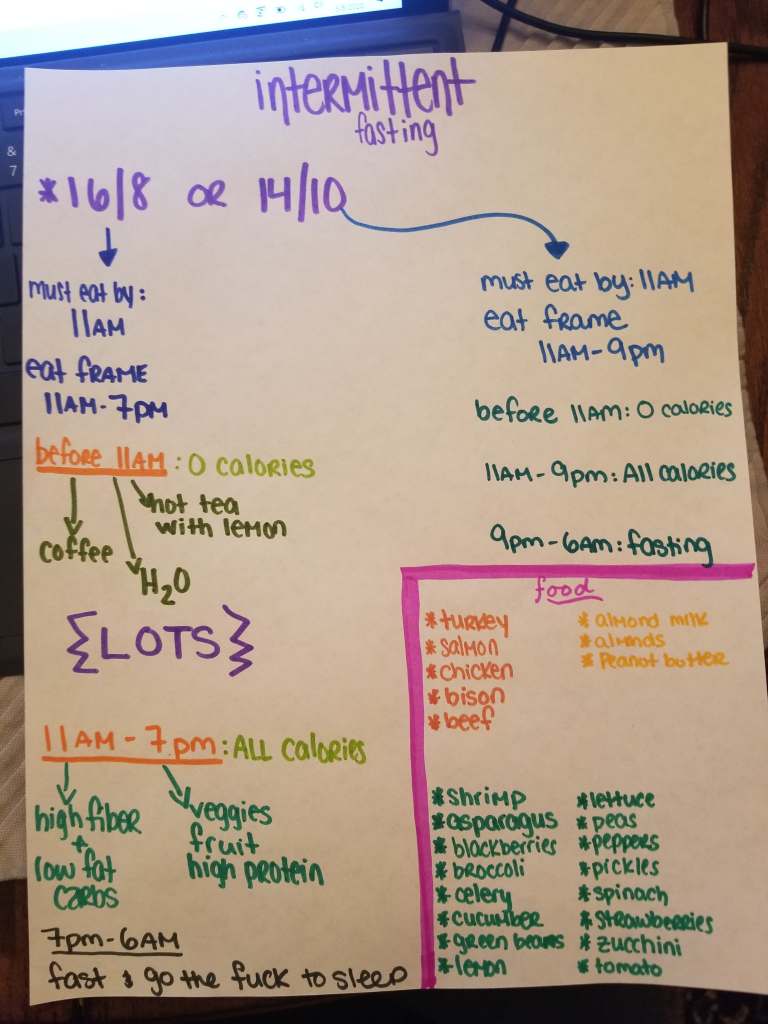 intermittent
fasting
*16/8 OR 14/10
must eat by:
11AM
eat frame
11AM-7pm
before 11AM: 0 calories
coffee
H2O
hot tea
with lemon
{LOTS}
11AM-7pm: ALL calories
high fiber
+
low fat
carbs
veggies
fruit
high protein
7pm-6AM
fast & go the fuck to sleep
must eat by: 11AM
eat frame
11AM-9pm
before 11AM: 0 calories
11AM-9pm: All calories
9pm-6AM: fasting
food
*turkey
*salmon
*chicken
*bison
*beef
*almond milk
*almonds
*Peanot butter
*shrimp
*asparagus
*blackberries
*broccoli
*celery
*cucumber
*green beans
*lemon
*lettuce
*peas
*peppers
*pickles
*spinach
*strawberries
*zucchini
*tomato
&
7